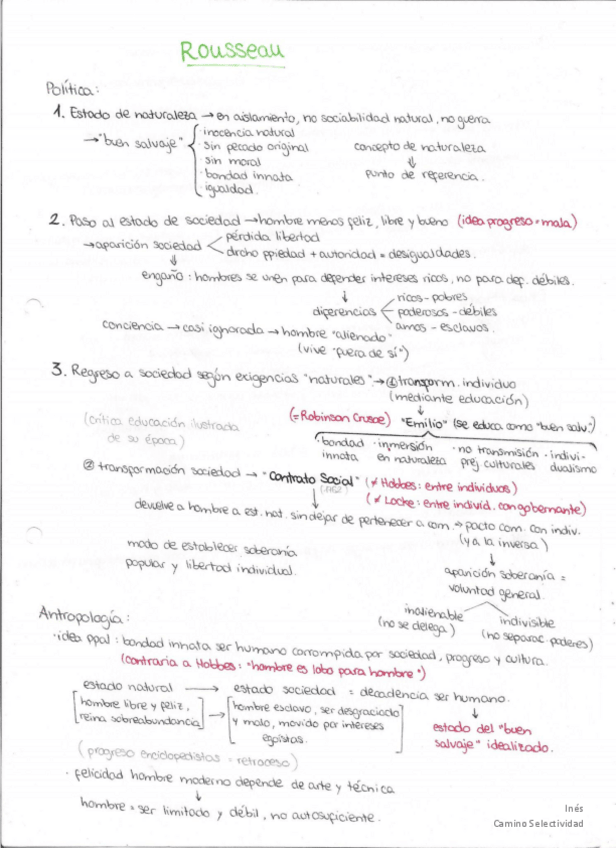 Rousseau
Política:
1. Estado de naturaleza → en aislamiento, no sociabilidad natural, no guerra
→ "buen salvaje" · inocencia natural
· sin pecado original
· sin moral
· bondad innata
· igualdad.
concepto de naturaleza
↓
punto de referencia.
2. Paso al estado de sociedad → hombre menos feliz, libre y bueno (idea progreso = mala)
→ aparición sociedad < pérdida libertad
drcho ppiedad + autoridad = desigualdades.
engaño: hombres se unen para depender intereses ricos, no para dep. débiles.
diferencias < ricos - pobres
poderosos - débiles
amos - esclavos.
conciencia → casi ignorada → hombre "alienado"
(vive "fuera de sí")
3. Regreso a sociedad según exigencias "naturales" → ① transform. individuo
(mediante educación)
(crítica educación ilustrada
de su época)
(= Robinson Crusoe) "Emilio" (se educa como "buen salv.")
· bondad innata · inmersión en naturaleza · no transmisión prej culturales · individualismo
② transformación sociedad → "Contrato Social" (≠ Hobbes: entre individuos)
(≠ Locke: entre individ. con gobernante)
devuelve a hombre a est. nat. sin dejar de pertenecer a com. → pacto com. con indiv.
(y a la inversa)
modo de establecer soberanía
popular y libertad individual.
aparición soberanía =
voluntad general.
inalienable
(no se delega)
indivisible
(no separac. poderes)
Antropología:
· idea ppal: bondad innata ser humano corrompida por sociedad, progreso y cultura.
(contraria a Hobbes: "hombre es lobo para hombre")
estado natural → estado sociedad = decadencia ser humano.
[hombre libre y feliz,
reina sobreabundancia] → [hombre esclavo, ser desgraciado
y malo, movido por intereses
egoístas.]
estado del "buen
salvaje" idealizado.
(progreso enciclopedistas = retroceso)
· felicidad hombre moderno depende de arte y técnica
↓
hombre = ser limitado y débil, no autosuficiente.
Inés
Camino Selectividad